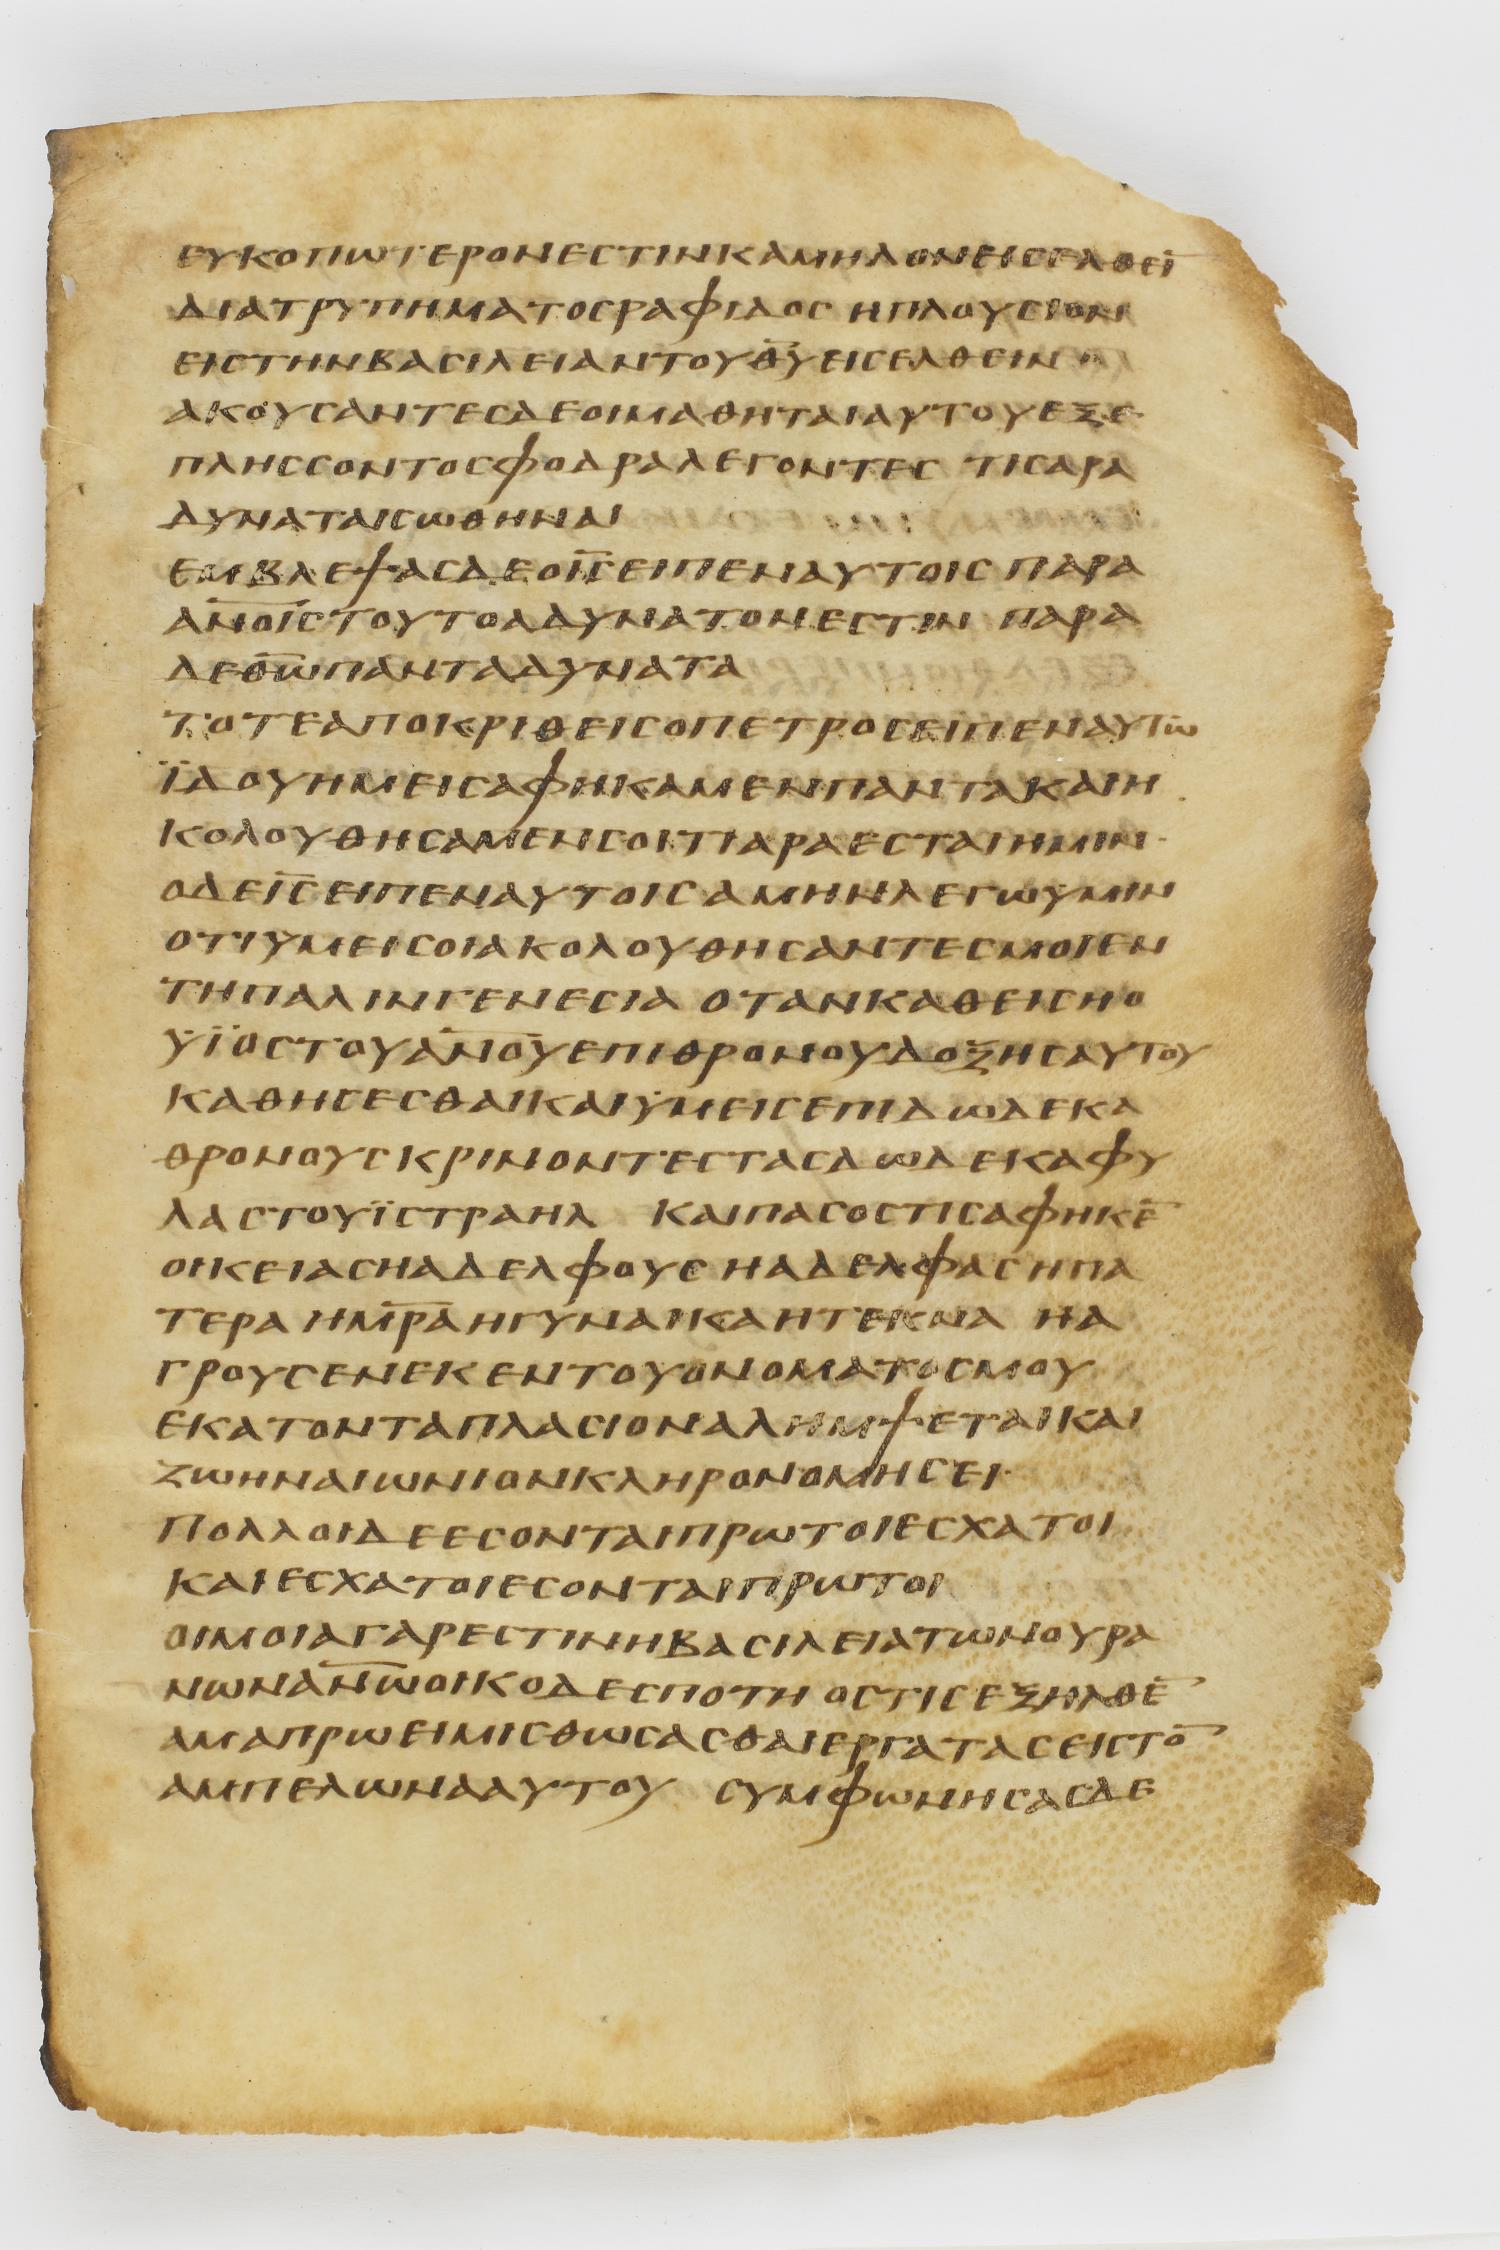 ευκοπωτερονεστινκαμηλονεισελθει̅
διατρυπηματοσραφιδοσ ηπλουσιον
ειστηνβασιλειαντουθ̅υ̅εισελθειν
ακουσαντεσδεοιμαθηταιαυτουεξε·
πλησσοντοσφοδραλεγοντεσ τισαρα
δυναταισωθηναι
εμβλεψασδεοι̅σ̅ειπεναυτοισ παρα
α̅ν̅ο̅ι̅σ̅τουτοαδυνατονεστιν παρα
δεθ̅ω̅πανταδυνατα
τοτεαποικριθεισοπετροσειπεναυτω
ϊδουημεισαφηκαμενπαντακαιη
κολουθησαμενσοιτιαραεσταιημιν·
οδει̅σ̅ειπεναυτοισαμηνλεγωυμιν
οτιυμεισοιακολουθησαντεσμοιεν
τηπαλινγενεσια οτανκαθεισηο
ϋϊοστουα̅ν̅ο̅υ̅επιθρονουδοξησαυτου
καθησεσθαικαιϋμεισεπιδωδεκα
θρονουσκρινοντεστασδωδεκαφυ
λαστουϊστραηλ καιπασοστισαφηκε̅
οικειασηαδελφουσ ηαδελφασηπα
τερα ημ̅ρ̅α̅ηγυναικαητεκνα ηα
γρουσενεκεντουονοματοσμου
εκατονταπλασιοναλημψεταικαι
ζωηναιωνιονκληρονομησει·
πολλοιδεεσονταιπρωτοιεσχατοι
καιεσχατοιεσονταιπρωτοι
οιμοιαγαρεστινηβασιλειατωνουρα
νωνα̅ν̅ω̅οικοδεσποτη οστισεξηλθε̅
αμαπρωειμισθωσασθαιεργατασειστο̅
αμπελωνααυτου συμφωνησασδε